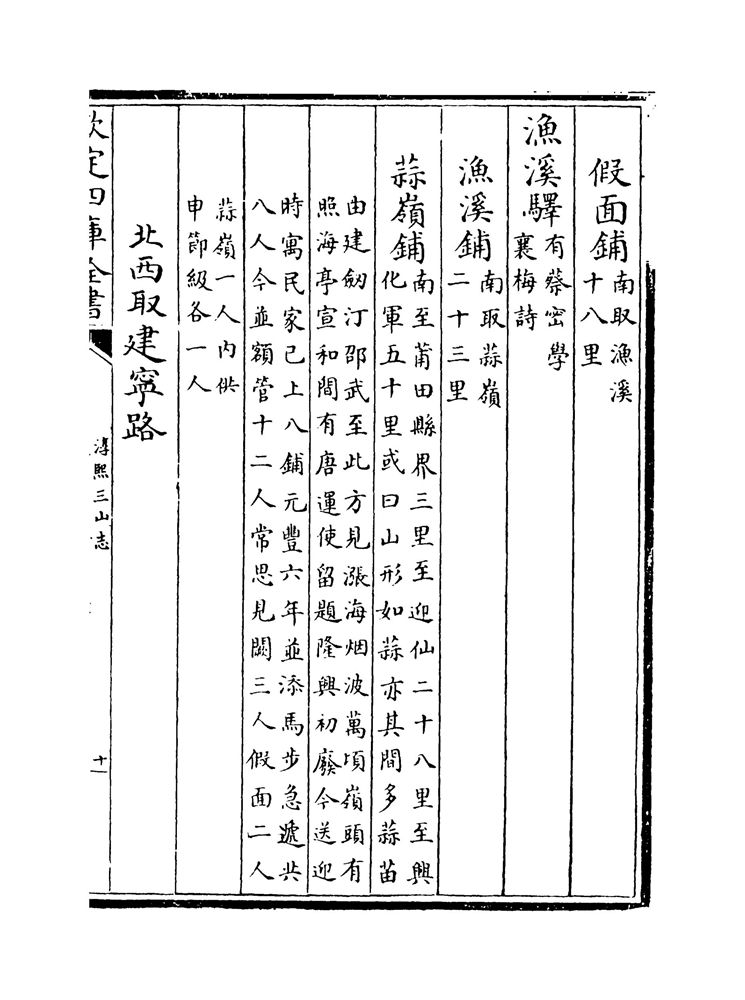 假面鋪南取漁溪
十八里
漁溪驛有蔡密學
襄梅詩
漁溪鋪南取蒜嶺
二十三里
蒜嶺鋪南至莆田縣界三里至迎仙二十八里至興
化軍五十里或曰山形如蒜亦其間多蒜苗
由建劒汀邵武至此方見漲海烟波萬頃嶺頭有
照海亭宣和間有唐運使留題隆興初廢今送迎
時寓民家已上八鋪元豐六年並添馬步急遞共
八人今並額管十二人常思見闕三人假面二人
蒜嶺一人内供
申節級各一人
北西取建寧路
欽定四庫全書
淳熙三山志
十一